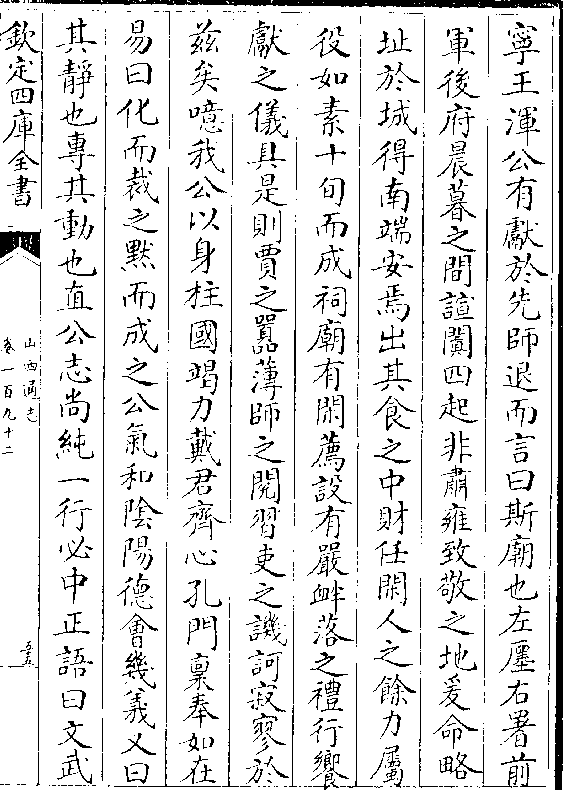 寧王渾公有獻於先師退而言曰斯廟也左㕓右署前
軍後府晨暮之間諠闐四起非肅雍致敬之地爰命略
址於城得南端安焉出其食之中財任閑人之餘力屬
役如素十旬而成祠廟有閑薦設有嚴衅落之禮行饗
獻之儀具是則賈之囂薄師之閱習吏之譏訶寂寥於
兹矣噫我公以身柱國竭力戴君齊心孔門禀奉如在
易曰化而裁之黙而成之公氣和陰陽德會幾義又曰
其靜也專其動也直公志尚純一行必中正語曰文武
欽定四庫全書
山西通志
卷一百九十二